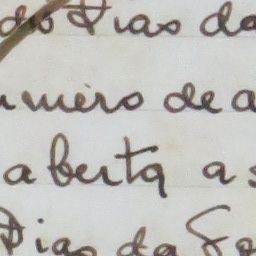 dio Dias da
umero de a
aberta a s
Dias da Fo